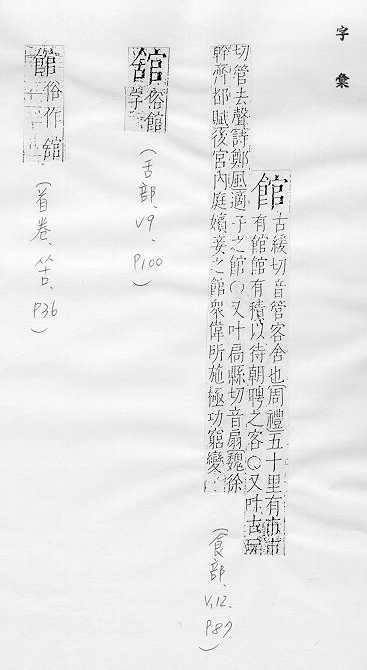 字彙
館
古緩切音管客舍也周禮五十里有市市
有館館有積以待朝聘之客〇又叶古玩
切管去聲詩鄭風適子之館〇又叶扃縣切音扇魏徐
幹齊都賦後宮內庭嬪妾之館衆偉所施極功窮變
(食部、V,12、P87)
舘
俗館
字
(舌部、V9、P100)
館
俗作舘
(首卷、P36)